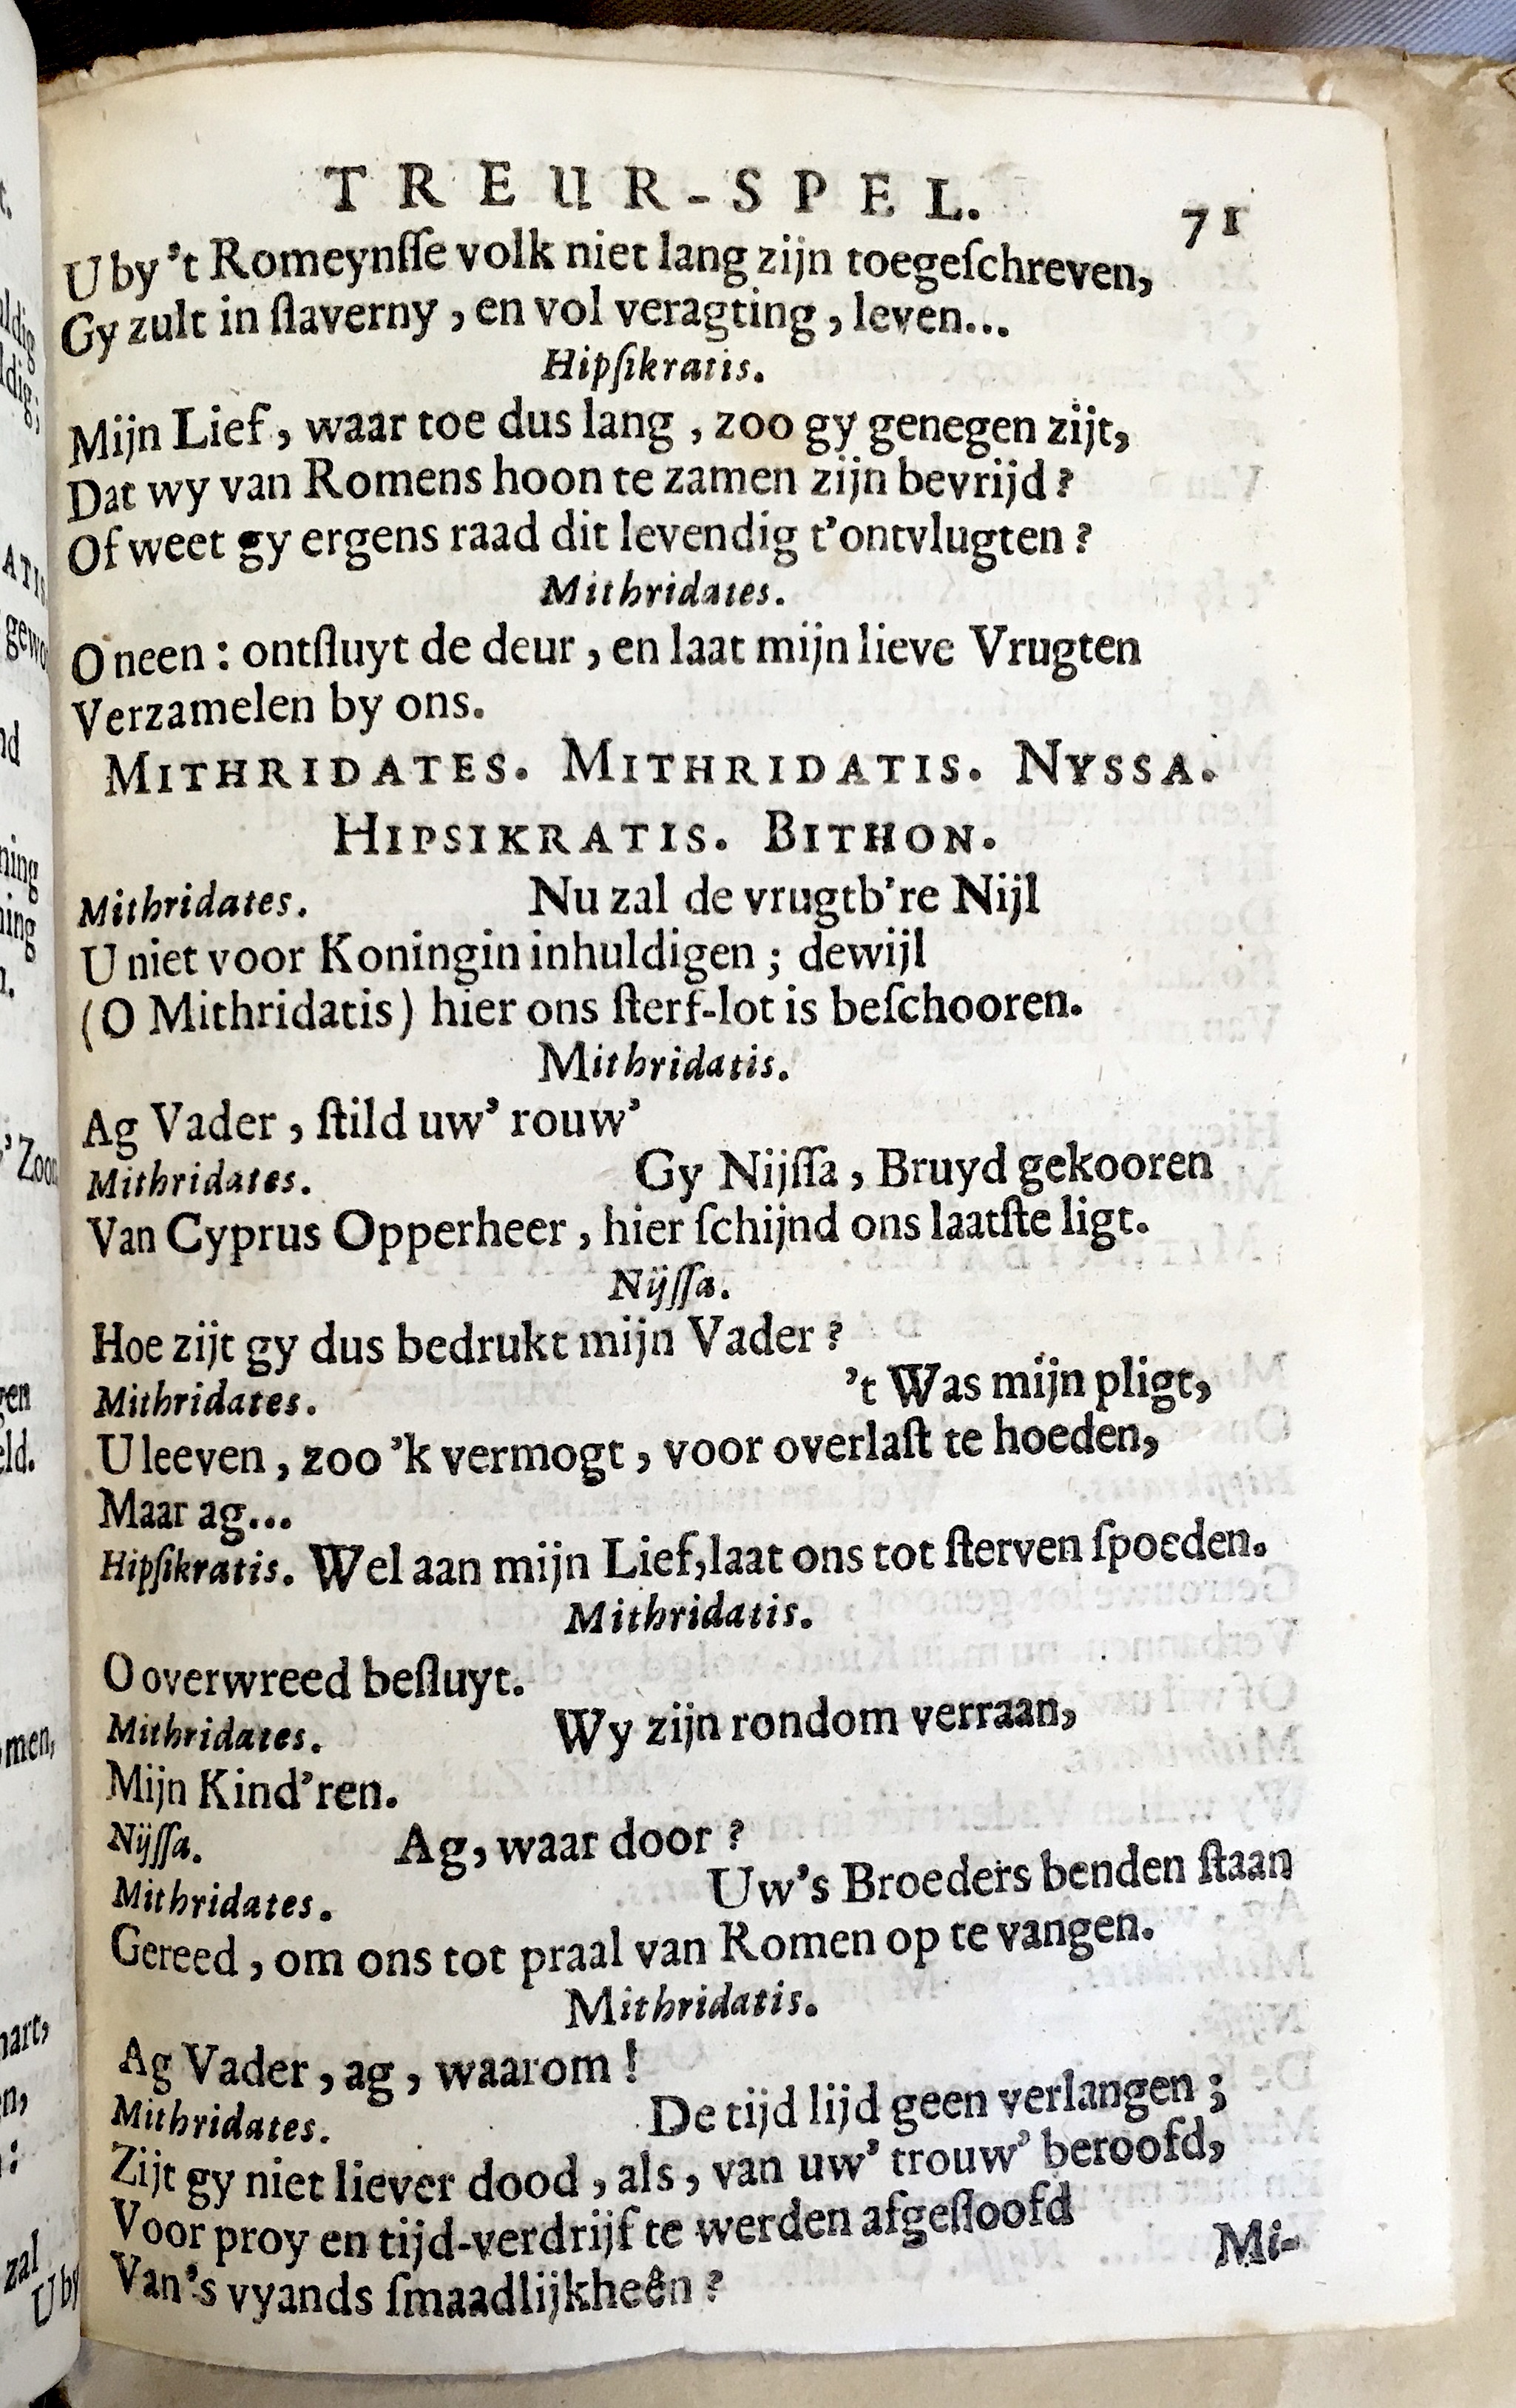 TREUR-SPEL. 71
U by 't Romeynſſe volk niet lang zijn toegeſchreven,
Gy zult in ſlaverny, en vol veragting, leven...
Hipſikratis.
Mijn Lief, waar toe dus lang, zoo gy genegen zijt,
Dat wy van Romens hoon te zamen zijn bevrijd?
Of weet gy ergens raad dit levendig t'ontvlugten?
Mithridates.
O neen: ontſluyt de deur, en laat mijn lieve Vrugten
Verzamelen by ons.
MITHRIDATES. MITHRIDATIS. NYSSA.
HIPSIKRATIS. BITHON.
Mithridates. Nu zal de vrugtb're Nijl
U niet voor Koningin inhuldigen; dewijl
(O Mithridatis) hier ons ſterf-lot is beſchooren.
Mithridatis.
Ag Vader, ſtild uw' rouw'
Mithridates. Gy Nijſſa, Bruyd gekooren
Van Cyprus Opperheer, hier ſchijnd ons laatſte ligt.
Nijſſa.
Hoe zijt gy dus bedrukt mijn Vader?
Mithridates. 't Was mijn pligt,
U leeven, zoo 'k vermogt, voor overlaſt te hoeden,
Maar ag...
Hipſikratis. Wel aan mijn Lief, laat ons tot ſterven ſpoeden.
Mithridatis.
O overwreed beſluyt.
Mithridates. Wy zijn rondom verraan,
Mijn Kind'ren.
Nijſſa. Ag, waar door?
Mithridates. Uw's Broeders benden ſtaan
Gereed, om ons tot praal van Romen op te vangen.
Mithridatis.
Ag Vader, ag, waarom!
Mithridates. De tijd lijd geen verlangen;
Zijt gy niet liever dood, als, van uw' trouw' beroofd,
Voor proy en tijd-verdrijf te werden afgeſloofd
Van's vyands ſmaadlijkheên?
Mi-